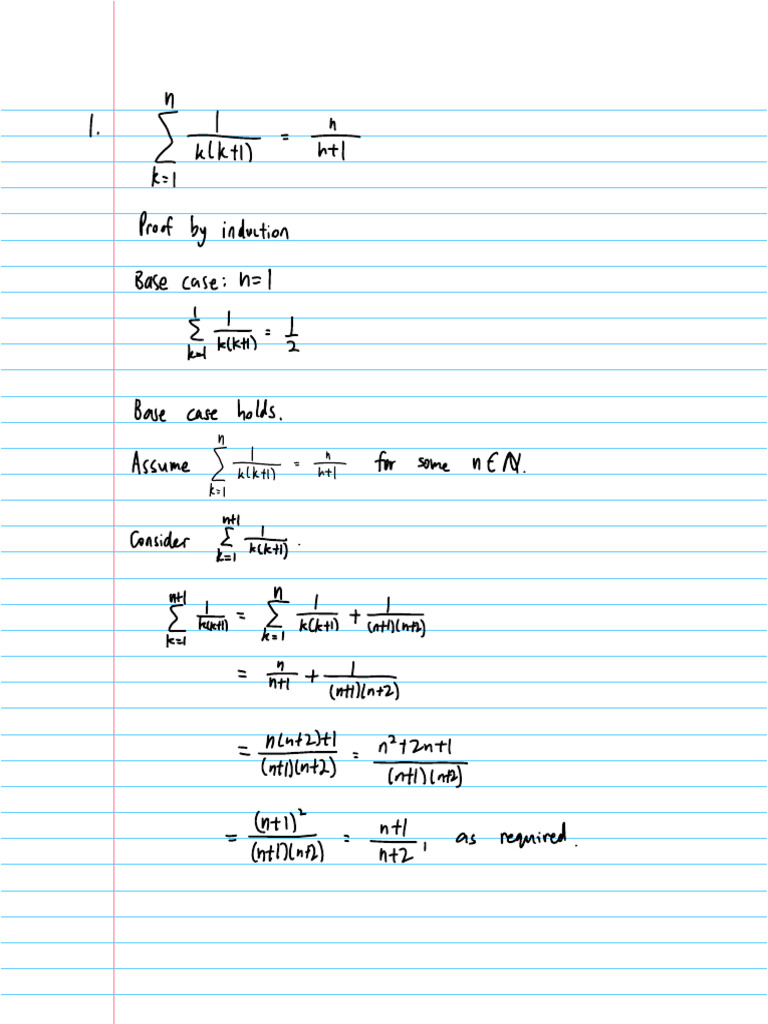 1. \sum_{k=1}^{n} \frac{1}{k(k+1)} = \frac{n}{n+1}
Proof by induction
Base case: n=1
\sum_{k=1}^{1} \frac{1}{k(k+1)} = \frac{1}{2}
Base case holds.
Assume \sum_{k=1}^{n} \frac{1}{k(k+1)} = \frac{n}{n+1} for some n ∈ ℕ.
Consider \sum_{k=1}^{n+1} \frac{1}{k(k+1)}.
\sum_{k=1}^{n+1} \frac{1}{k(k+1)} = \sum_{k=1}^{n} \frac{1}{k(k+1)} + \frac{1}{(n+1)(n+2)}
= \frac{n}{n+1} + \frac{1}{(n+1)(n+2)}
= \frac{n(n+2)+1}{(n+1)(n+2)} = \frac{n^2+2n+1}{(n+1)(n+2)}
= \frac{(n+1)^2}{(n+1)(n+2)} = \frac{n+1}{n+2}, as required.